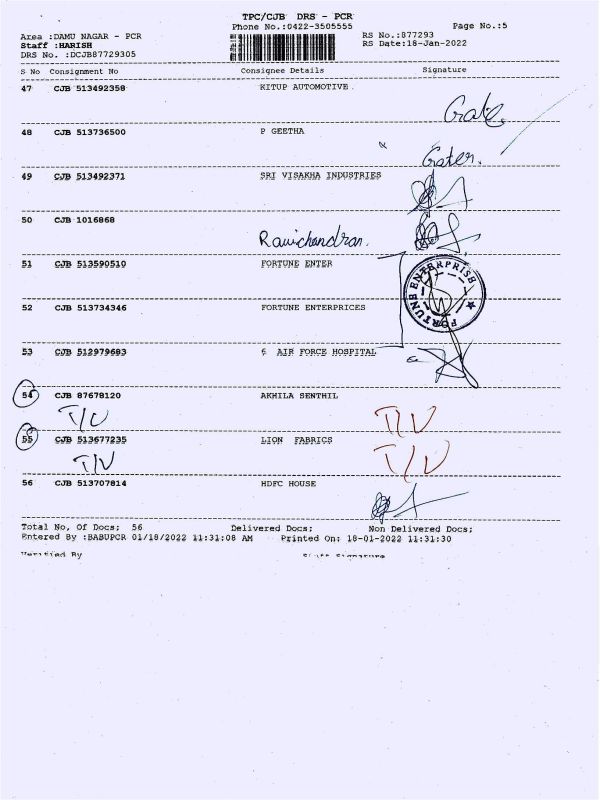 TPC/CJB DRS - PCR
Phone No.:0422-3505555
Page No.:5
Area :DAMU NAGAR - PCR
RS No.:877293
Staff :HARISH
RS Date:18-Jan-2022
DRS No. :DCJB87729305
S No Consignment No Consignee Details Signature
47 CJB 513492358 KITUP AUTOMOTIVE.
48 CJB 513736500 P GEETHA
49 CJB 513492371 SRI VISAKHA INDUSTRIES
50 CJB 1016868
Ravichandran.
51 CJB 513590510 FORTUNE ENTER
FORTUNE ENTERPRISE
52 CJB 513734346 FORTUNE ENTERPRICES
53 CJB 512979683 6 AIR FORCE HOSPITAL
54 CJB 87678120 AKHILA SENTHIL
55 CJB 513677235 LION FABRICS
56 CJB 513707814 HDFC HOUSE
Total No, Of Docs; 56 Delivered Docs; Non Delivered Docs;
Entered By :BABUPCR 01/18/2022 11:31:08 AM Printed On; 18-01-2022 11:31:30
Verified By Staff Signature